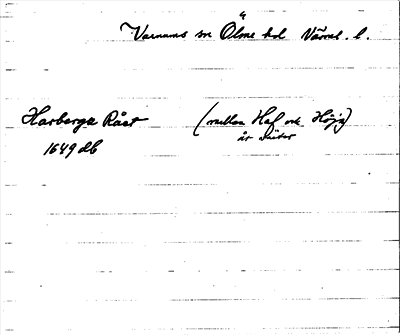 Varnums sn Ölme hd Värml. l.
Harberga Råst (mellan Haf och Höje)
1649 db är